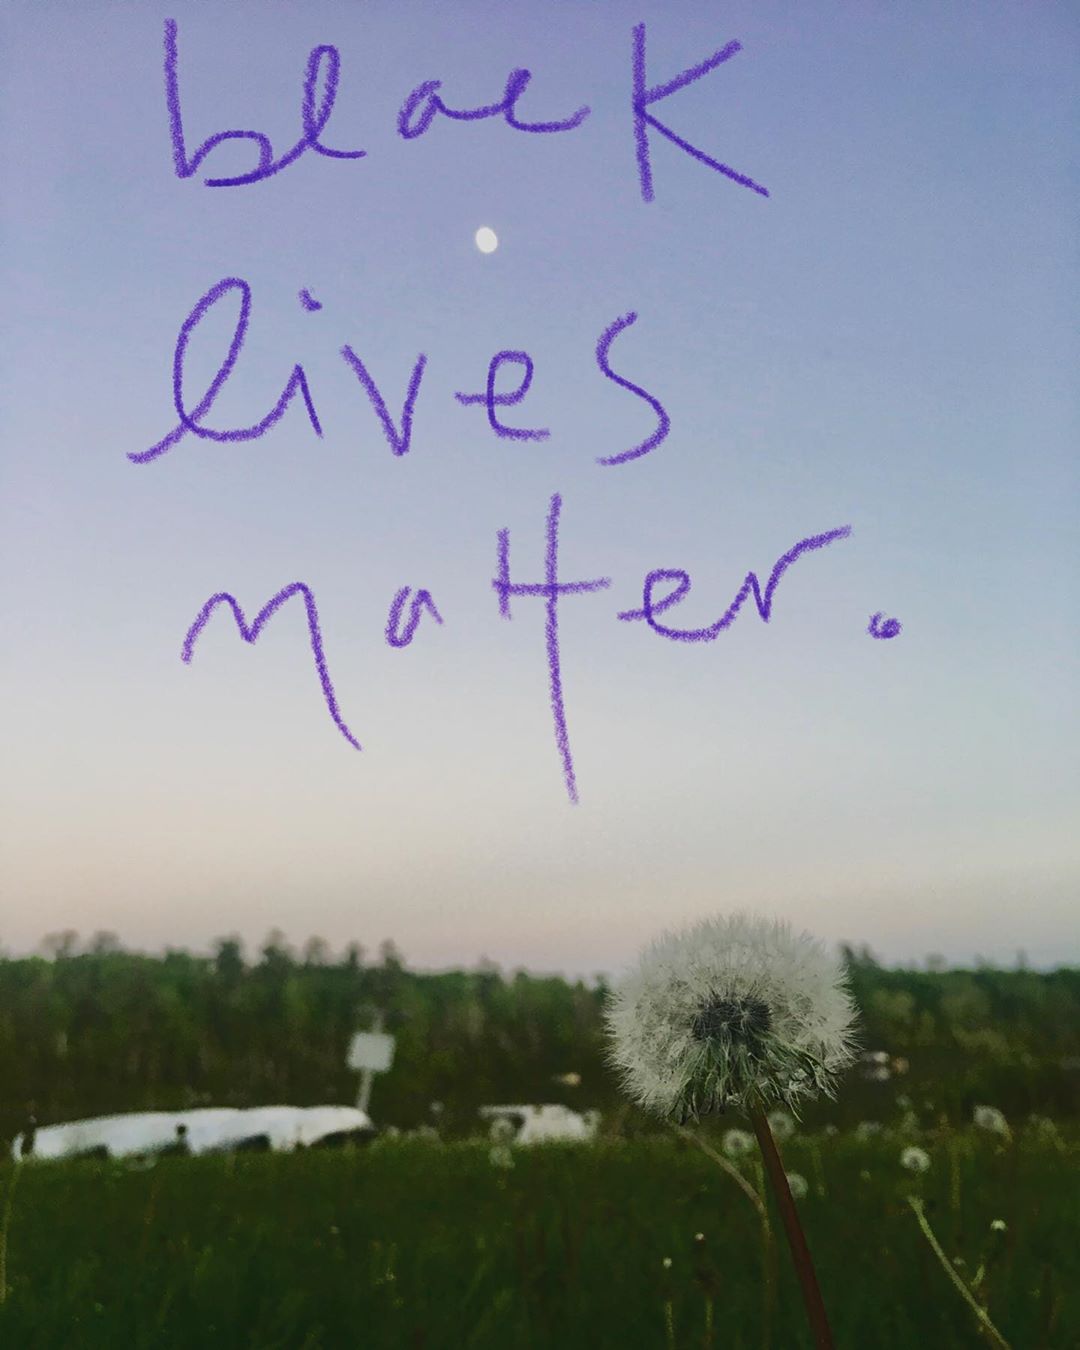 black
lives
matter.